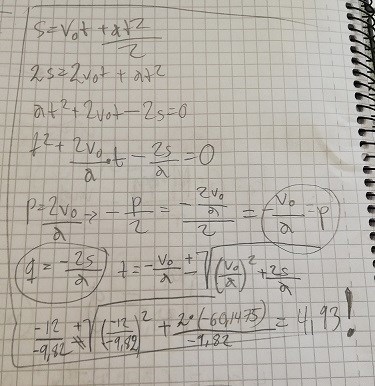 s = v₀t + at²/2
2s = 2v₀t + at²
at² + 2v₀t - 2s = 0
t² + 2v₀/a · t - 2s/a = 0
p = 2v₀/a → -p/2 = -(2v₀/a)/2 = -v₀/a = p
q = -2s/a t = -v₀/a ± √((v₀/a)² + 2s/a)
-12/-9,82 ± √((-12/-9,82)² + 2·(-60,1475)/-9,82) = 4,93!